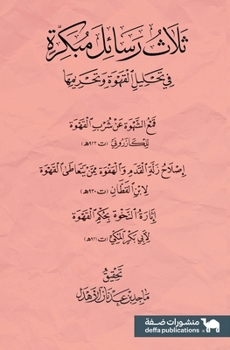 ثَلَاثُ رَسَائِل مُبَكِّرة
في تحليل القهوة وتحريمها
قمع الشهوة عن شرب القهوة
للكازروني (ت ٩١٢هـ)
إصلاح زلة القدم والهفوة ممن يتعاطى القهوة
لابن القطان (ت ٩٢٠هـ)
إثارة النخوة بحكم القهوة
لأبي بكر المكي
تحقيق
ماجد بن عدنان الأهدل
منشورات ضفة
deffa publications